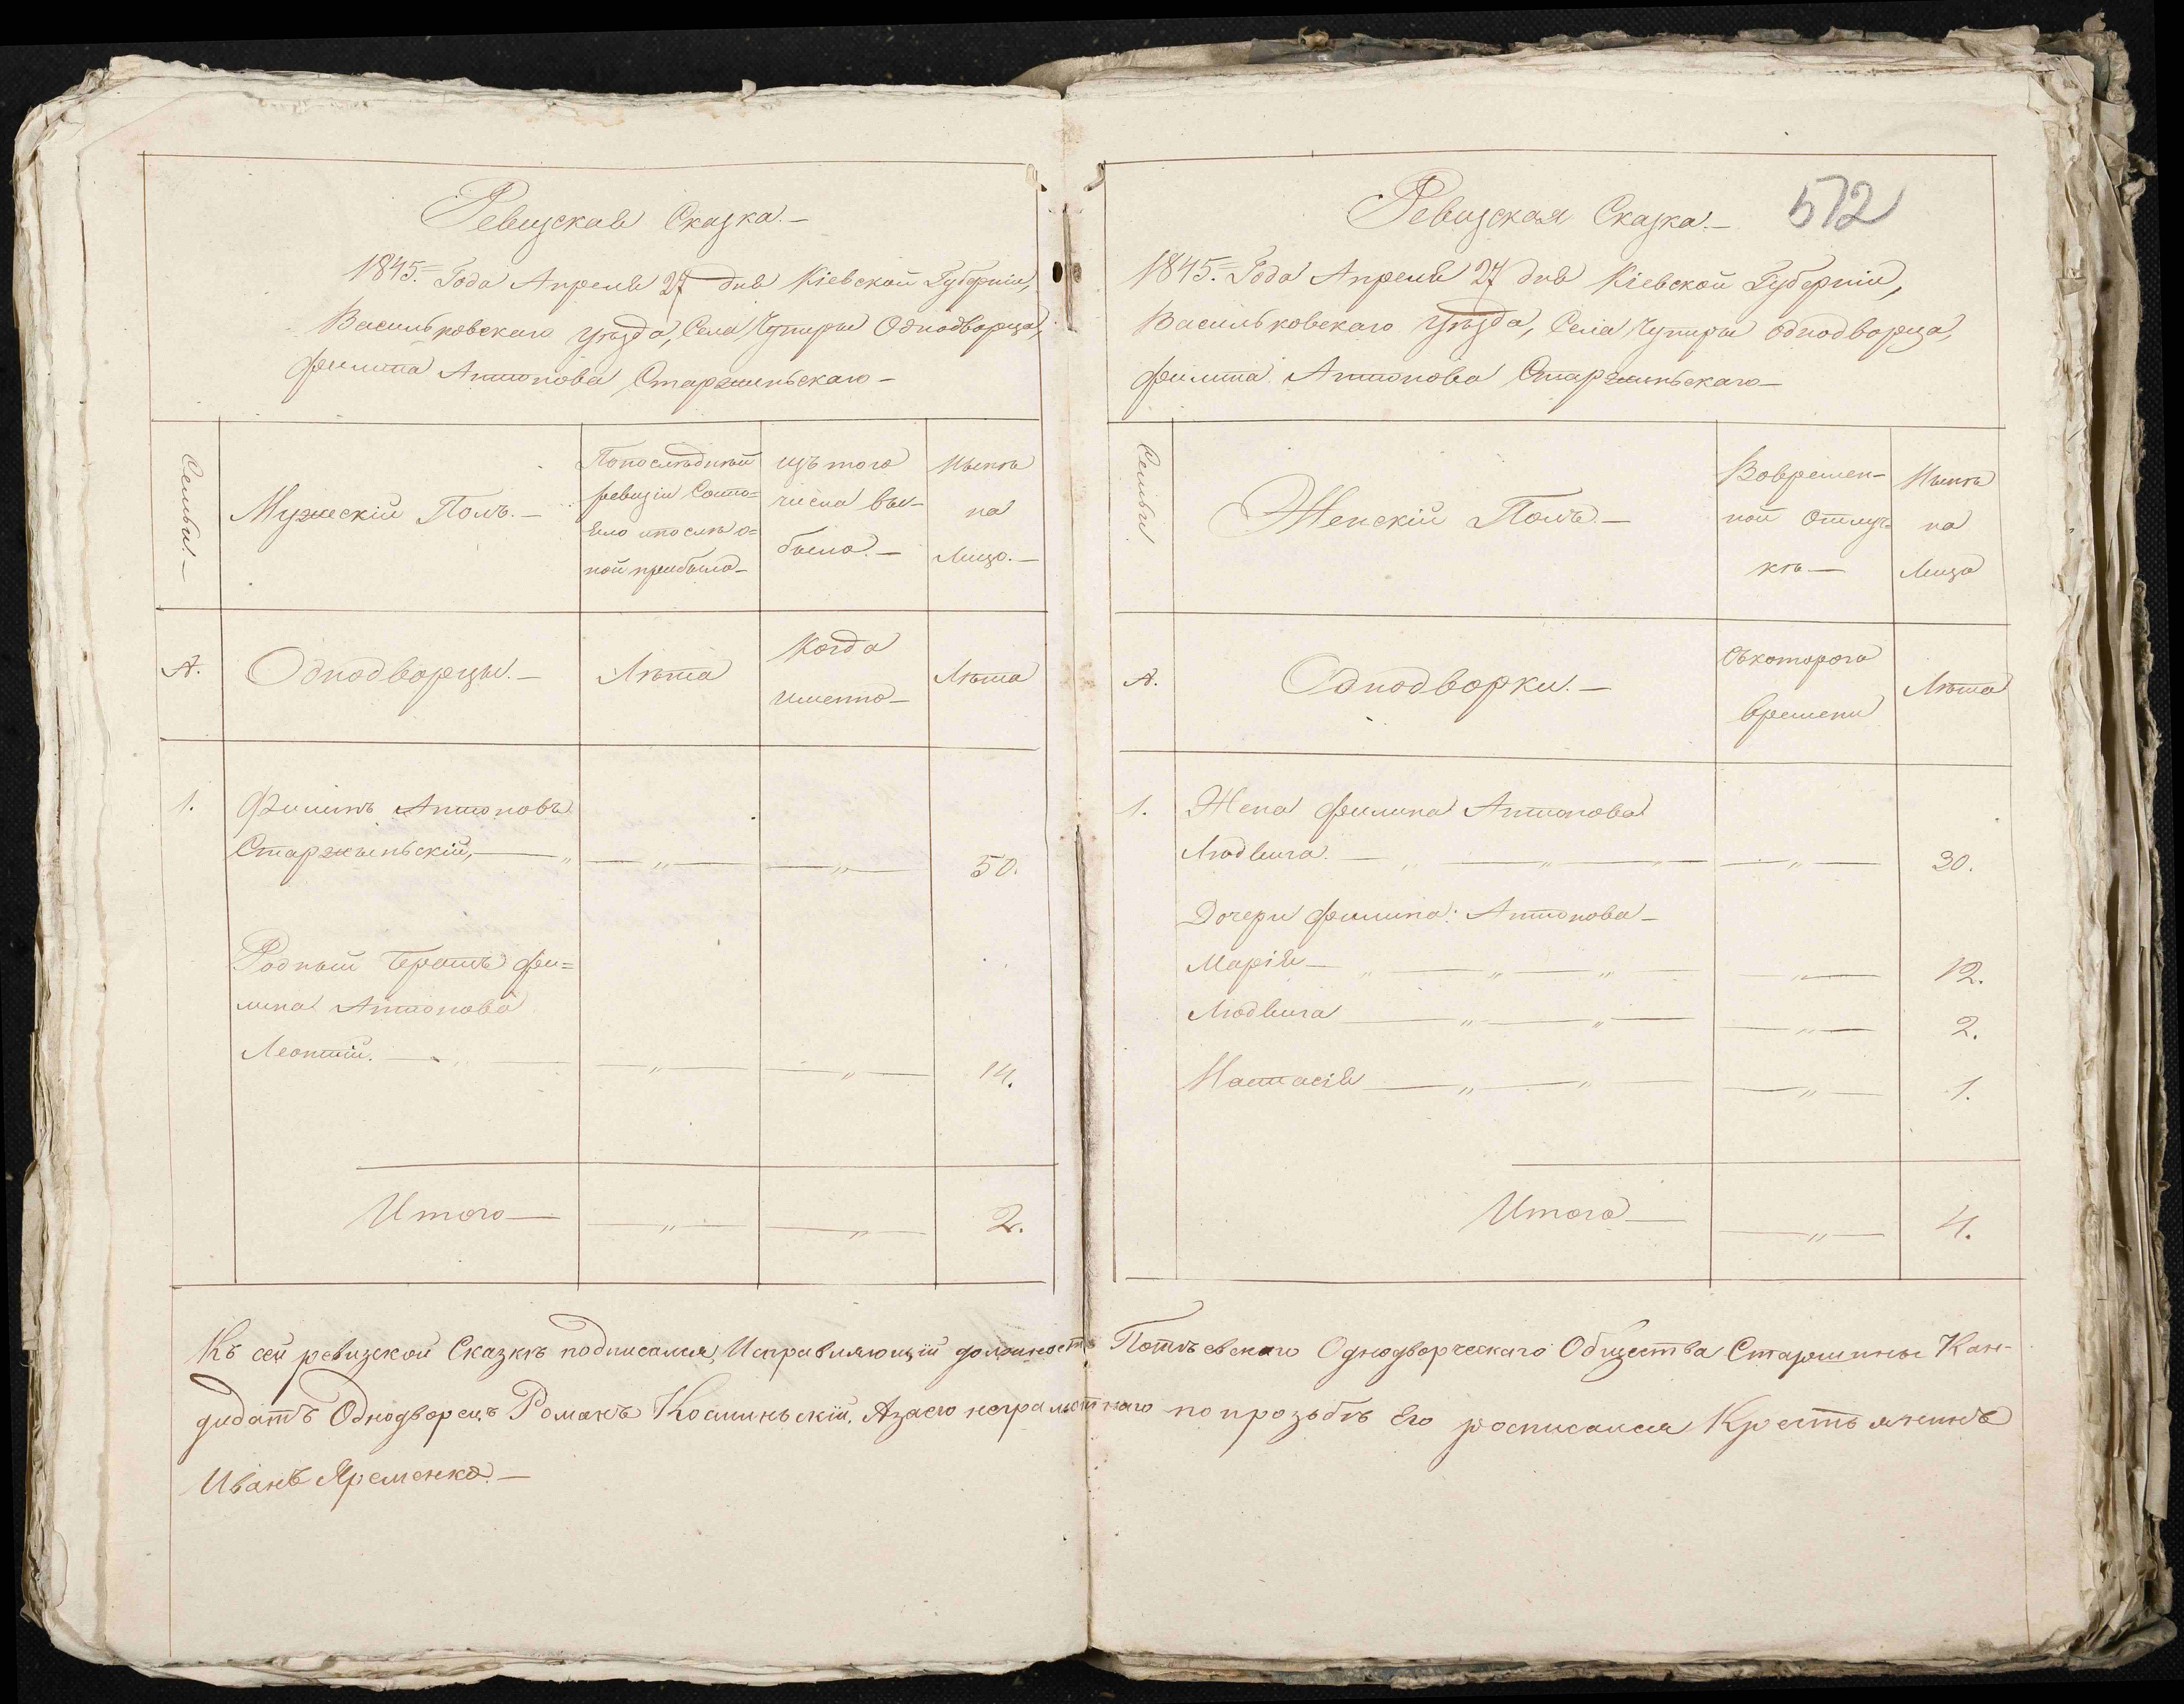 Ревизская Сказка.-
1845.= Года Апреля 27 дня Кіевской Губерніи,
Васильковскаго уезда, Села Чупиры Однодворца,
Филипа Антонова Старжиньскаго-
Семьи.-
Мужескій Полъ.-
Попоследнѣй
ревизіи Состо=
яло ипосле о=
ной прибыло-
изъ того
числа вы-
было.-
Нынѣ
на
Лицо.-
А.
Однодворцы.-
Лѣта
Когда
именно-
Лѣта
1.
Филипъ Антоновъ
Старжыньскій,
50.
Родный Братъ Фи=
липа Антонова
Леонтій.
14.
Итого-
2.
572
Ревизская Сказка.-
1845. Года Апреля 27 дня Кіевской Губерніи,
Васильковскаго уѣзда, Села Чупиры однодворца,
Филипа Антонова Старжиньскаго-
Семьи
Женскій Полъ-
Вовремен-
ной Отлуч-
кѣ-
Нынѣ
на
Лицо
А.
Однодворки.-
Съкоторого
времени
Лѣта
1.
Жена Филипа Антонова
Людвига.
30.
Дочери Филипа: Антонова-
Марія-
12.
Людвига
2.
Настасія
1.
Итого-
4.
Къ сей ревизской Сказкѣ подписался, Исправляющій должность Потіевскаго Однодворческаго Общества Старшины Кан-
дидатъ Однодворецъ Романъ Косминьскій, Азаего неграмотнаго попрозьбѣ Его росписался Крестьянинъ
Иванъ Яременко.-